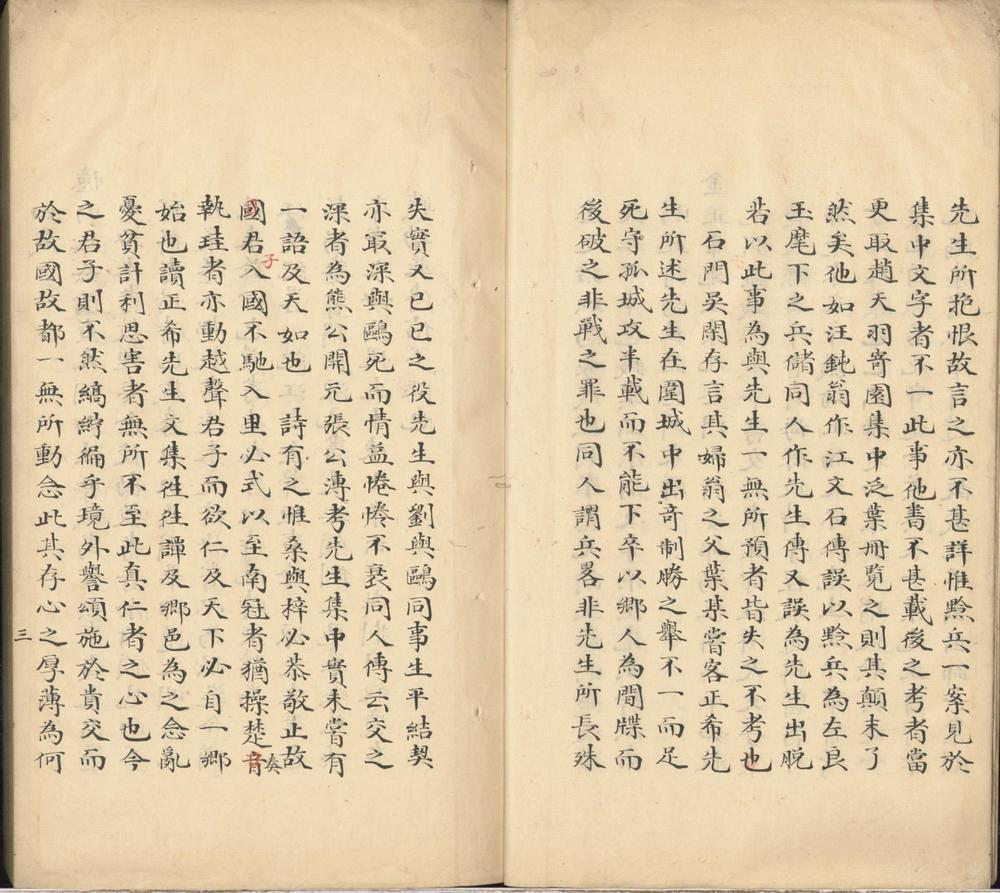 先生所抱恨故言之亦不甚詳惟黔兵一案見於
集中文字者不一此事他書不甚載後之考者當
更取趙天羽寄園集中泛葉冊覧之則其顛末了
然矣他如汪鈍翁作江文石傳誤以黔兵為左良
玉麾下之兵儲同人作先生傳又誤為先生出脱
若以此事為與先生一無所預者皆失之不考也
石門吴閑存言其婦翁之父葉某嘗客正希先
生所述先生在圍城中出奇制勝之舉不一而足
死守孤城攻半載而不能下卒以鄉人為間牒而
後破之非戰之罪也同人謂兵畧非先生所長殊
失實又已巳之役先生與劉與鷗同事生平結契
亦最深與鷗死而情益惓惓不衰同人傳云交之
深者為熊公開元張公溥考先生集中實未嘗有
一語及天如也 詩有之惟桑與梓必恭敬止故
國君子入國不馳入里必式以至南冠者猶操楚音
執珪者亦動越聲君子而欲仁及天下必自一鄉
始也讀正希先生文集徃徃譚及鄉邑為之念亂
憂貧計利思害者無所不至此真仁者之心也今
之君子則不然縞紵徧乎境外譽頌施於貴交而
於故國故都一無所動念此其存心之厚薄為何
奏
三